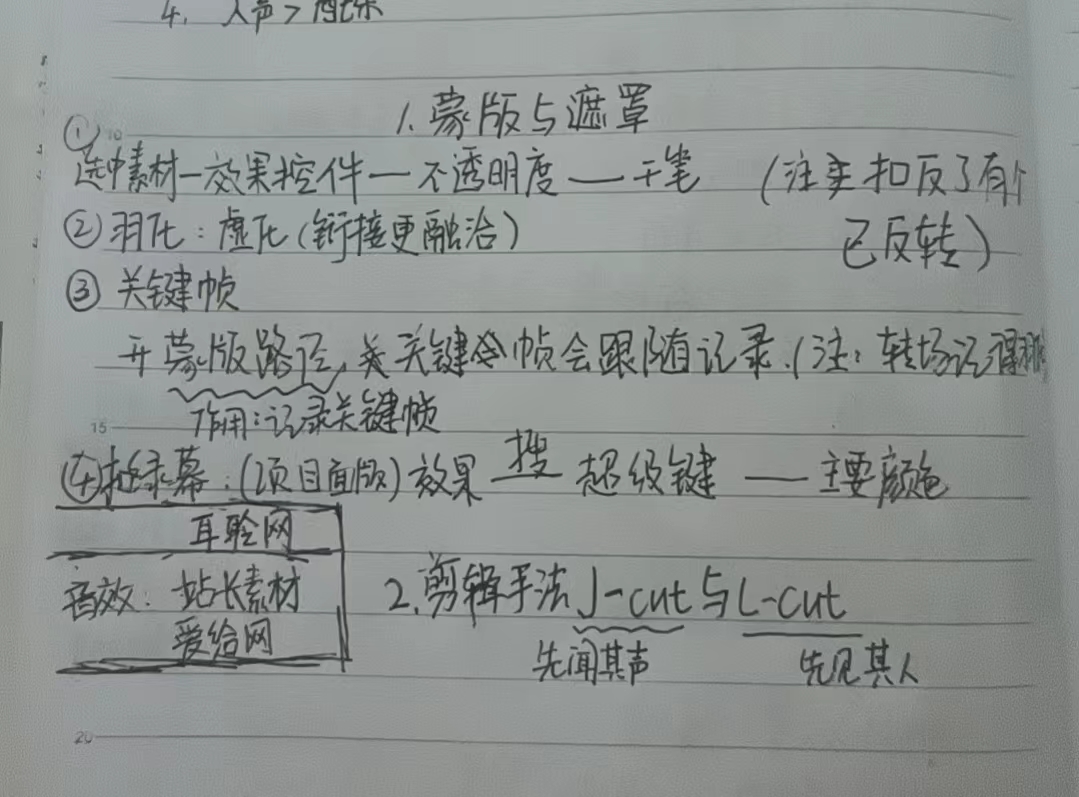 4. 人声>
1.蒙版与遮罩
①
选中素材—效果控件—不透明度——干笔 (注 扣反了有个
已反转)
②羽化:虚化(衔接更融洽)
③关键帧
开蒙版路径,关键帧会跟随记录.(注:转场记得
作用:记录关键帧
④抠绿幕:(项目面版)效果 搜 超级键 —— 主要颜色
耳聆网
音效:站长素材
爱给网
2.剪辑手法 J-cut与L-cut
先闻其声 先见其人
10
15
20